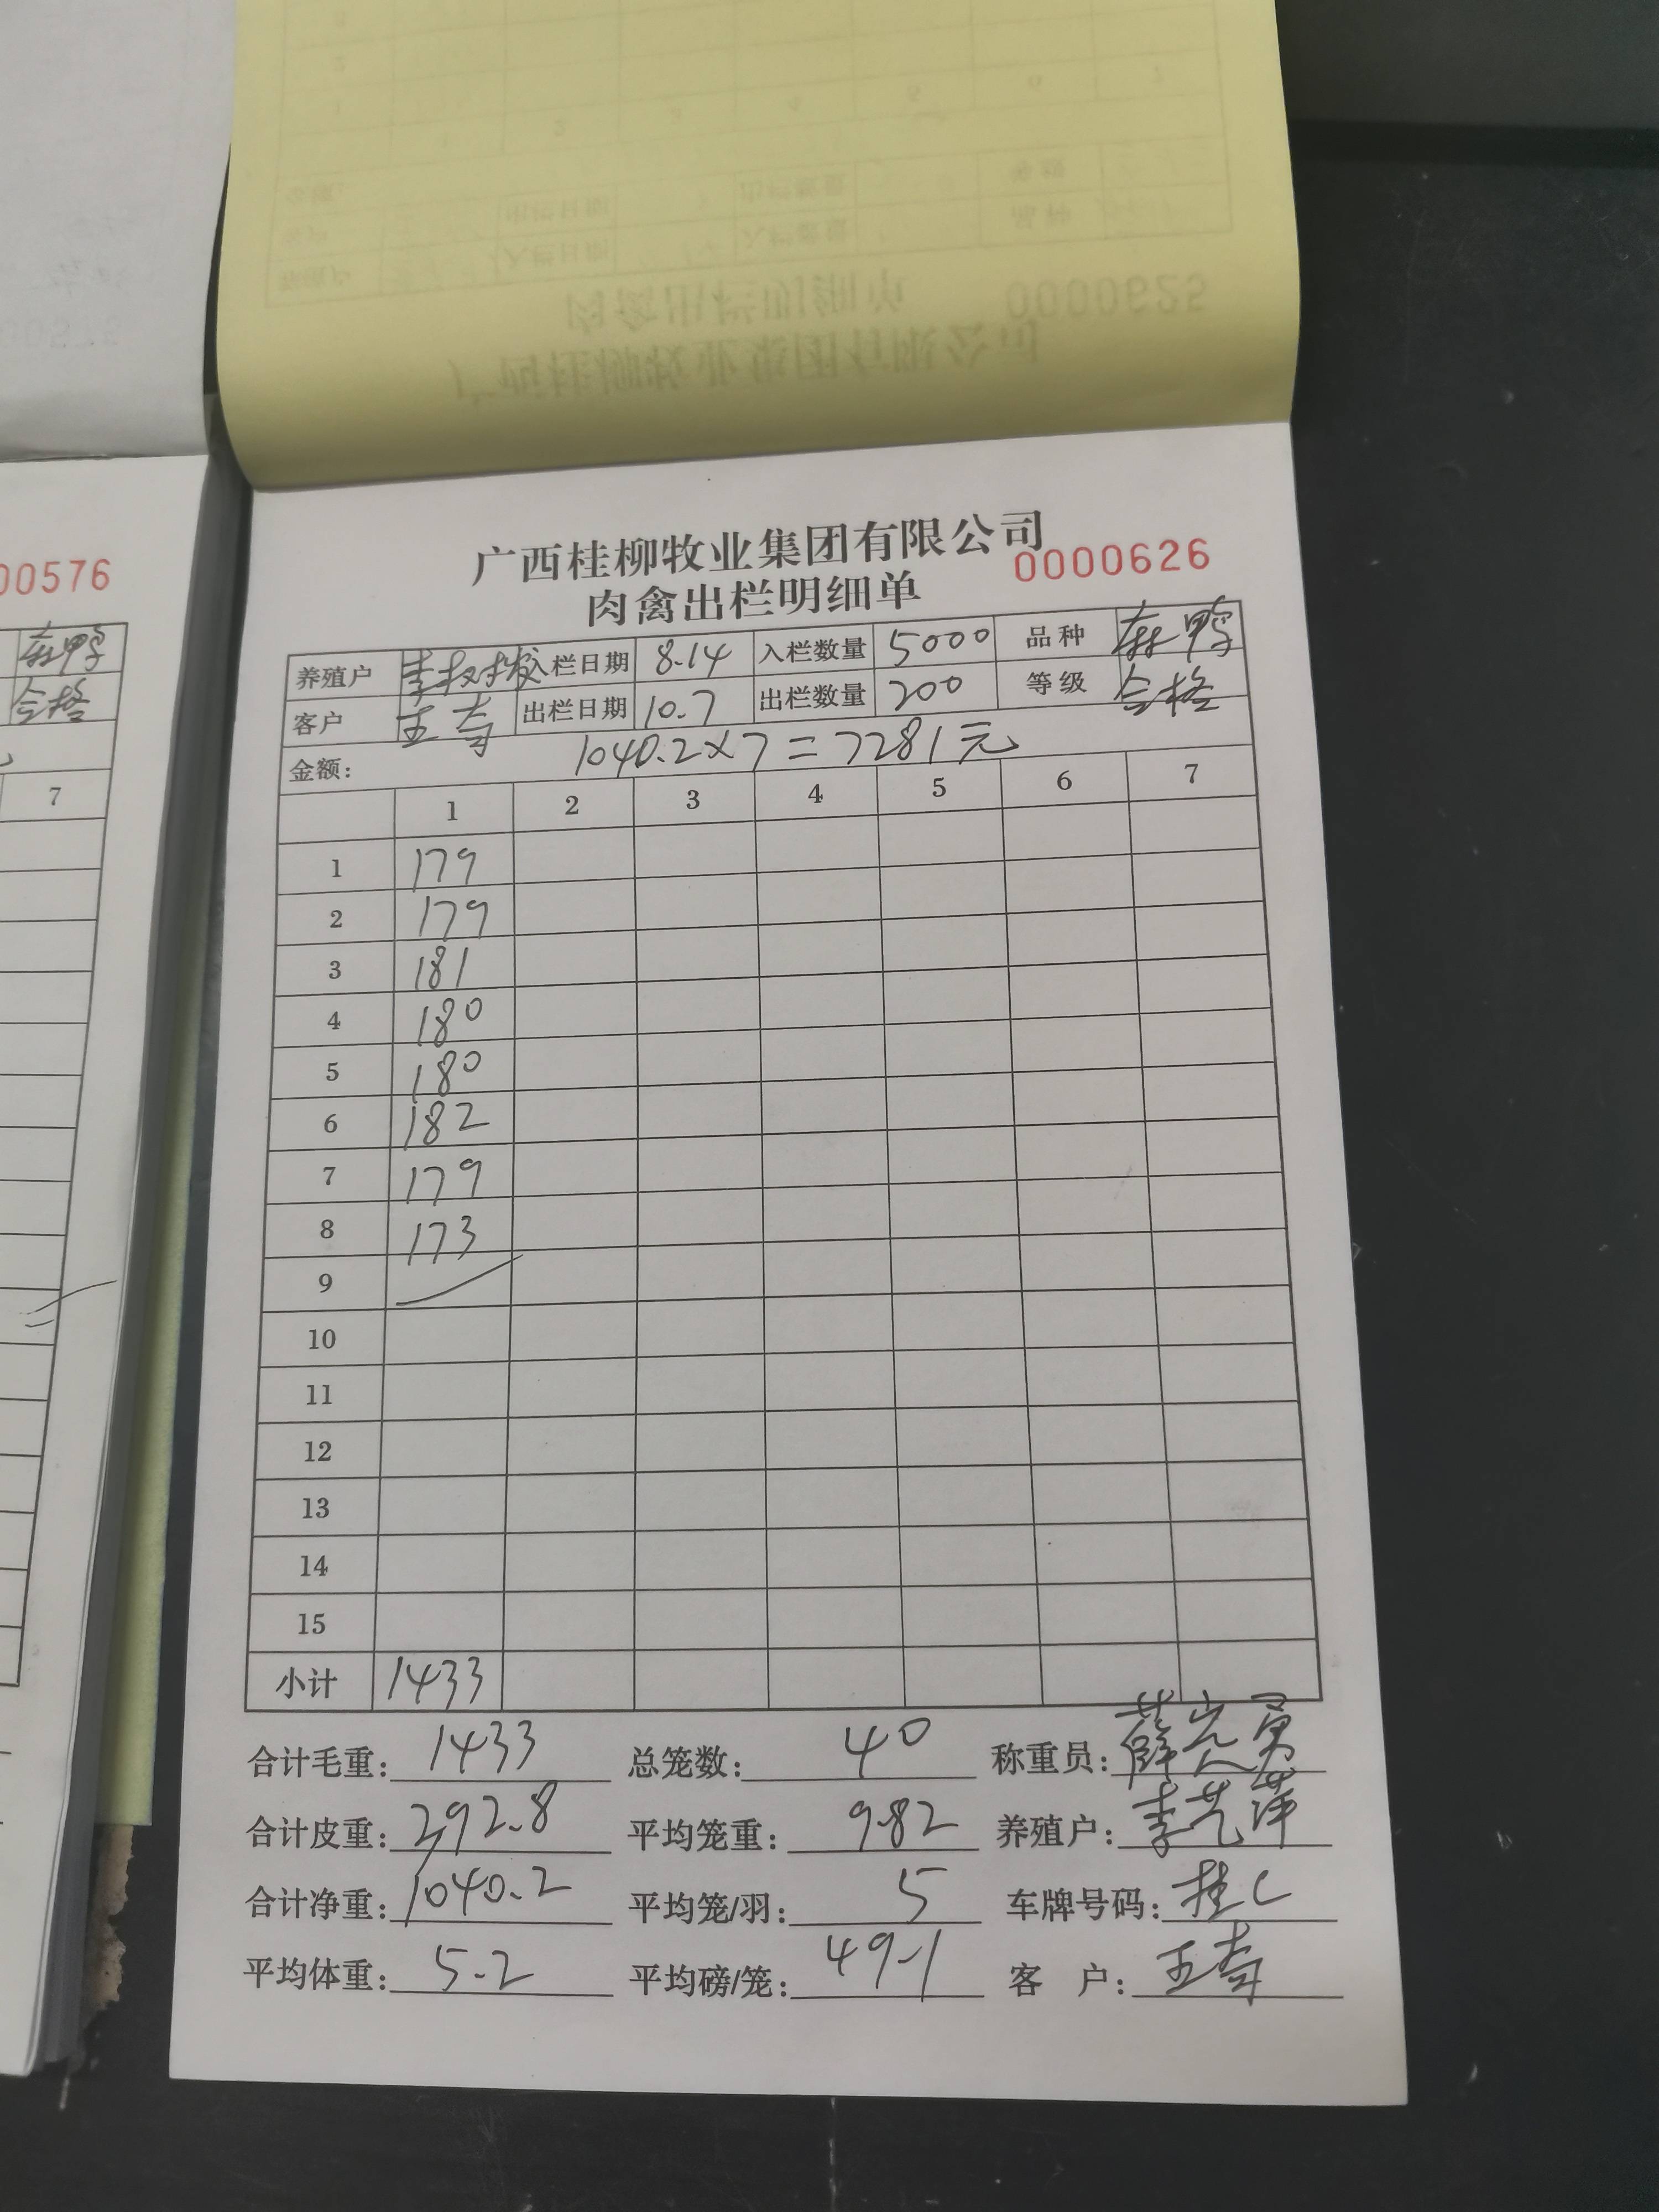 00576
麻鸭
合格
7
广西桂柳牧业集团有限公司
0000626
肉禽出栏明细单
养殖户 入栏日期 8.14 入栏数量 5000 品种 麻鸭
客户 出栏日期 10.7 出栏数量 200 等级 合格
金额: 1040.2×7=7281元
1 2 3 4 5 6 7
1 179
2 179
3 181
4 180
5 180
6 182
7 179
8 173
9
10
11
12
13
14
15
小计 1433
合计毛重: 1433 总笼数: 40 称重员:
合计皮重: 292.8 平均笼重: 9.82 养殖户: 李艺萍
合计净重: 1040.2 平均笼/羽: 5 车牌号码: 桂C
平均体重: 5.2 平均磅/笼: 49.1 客 户: